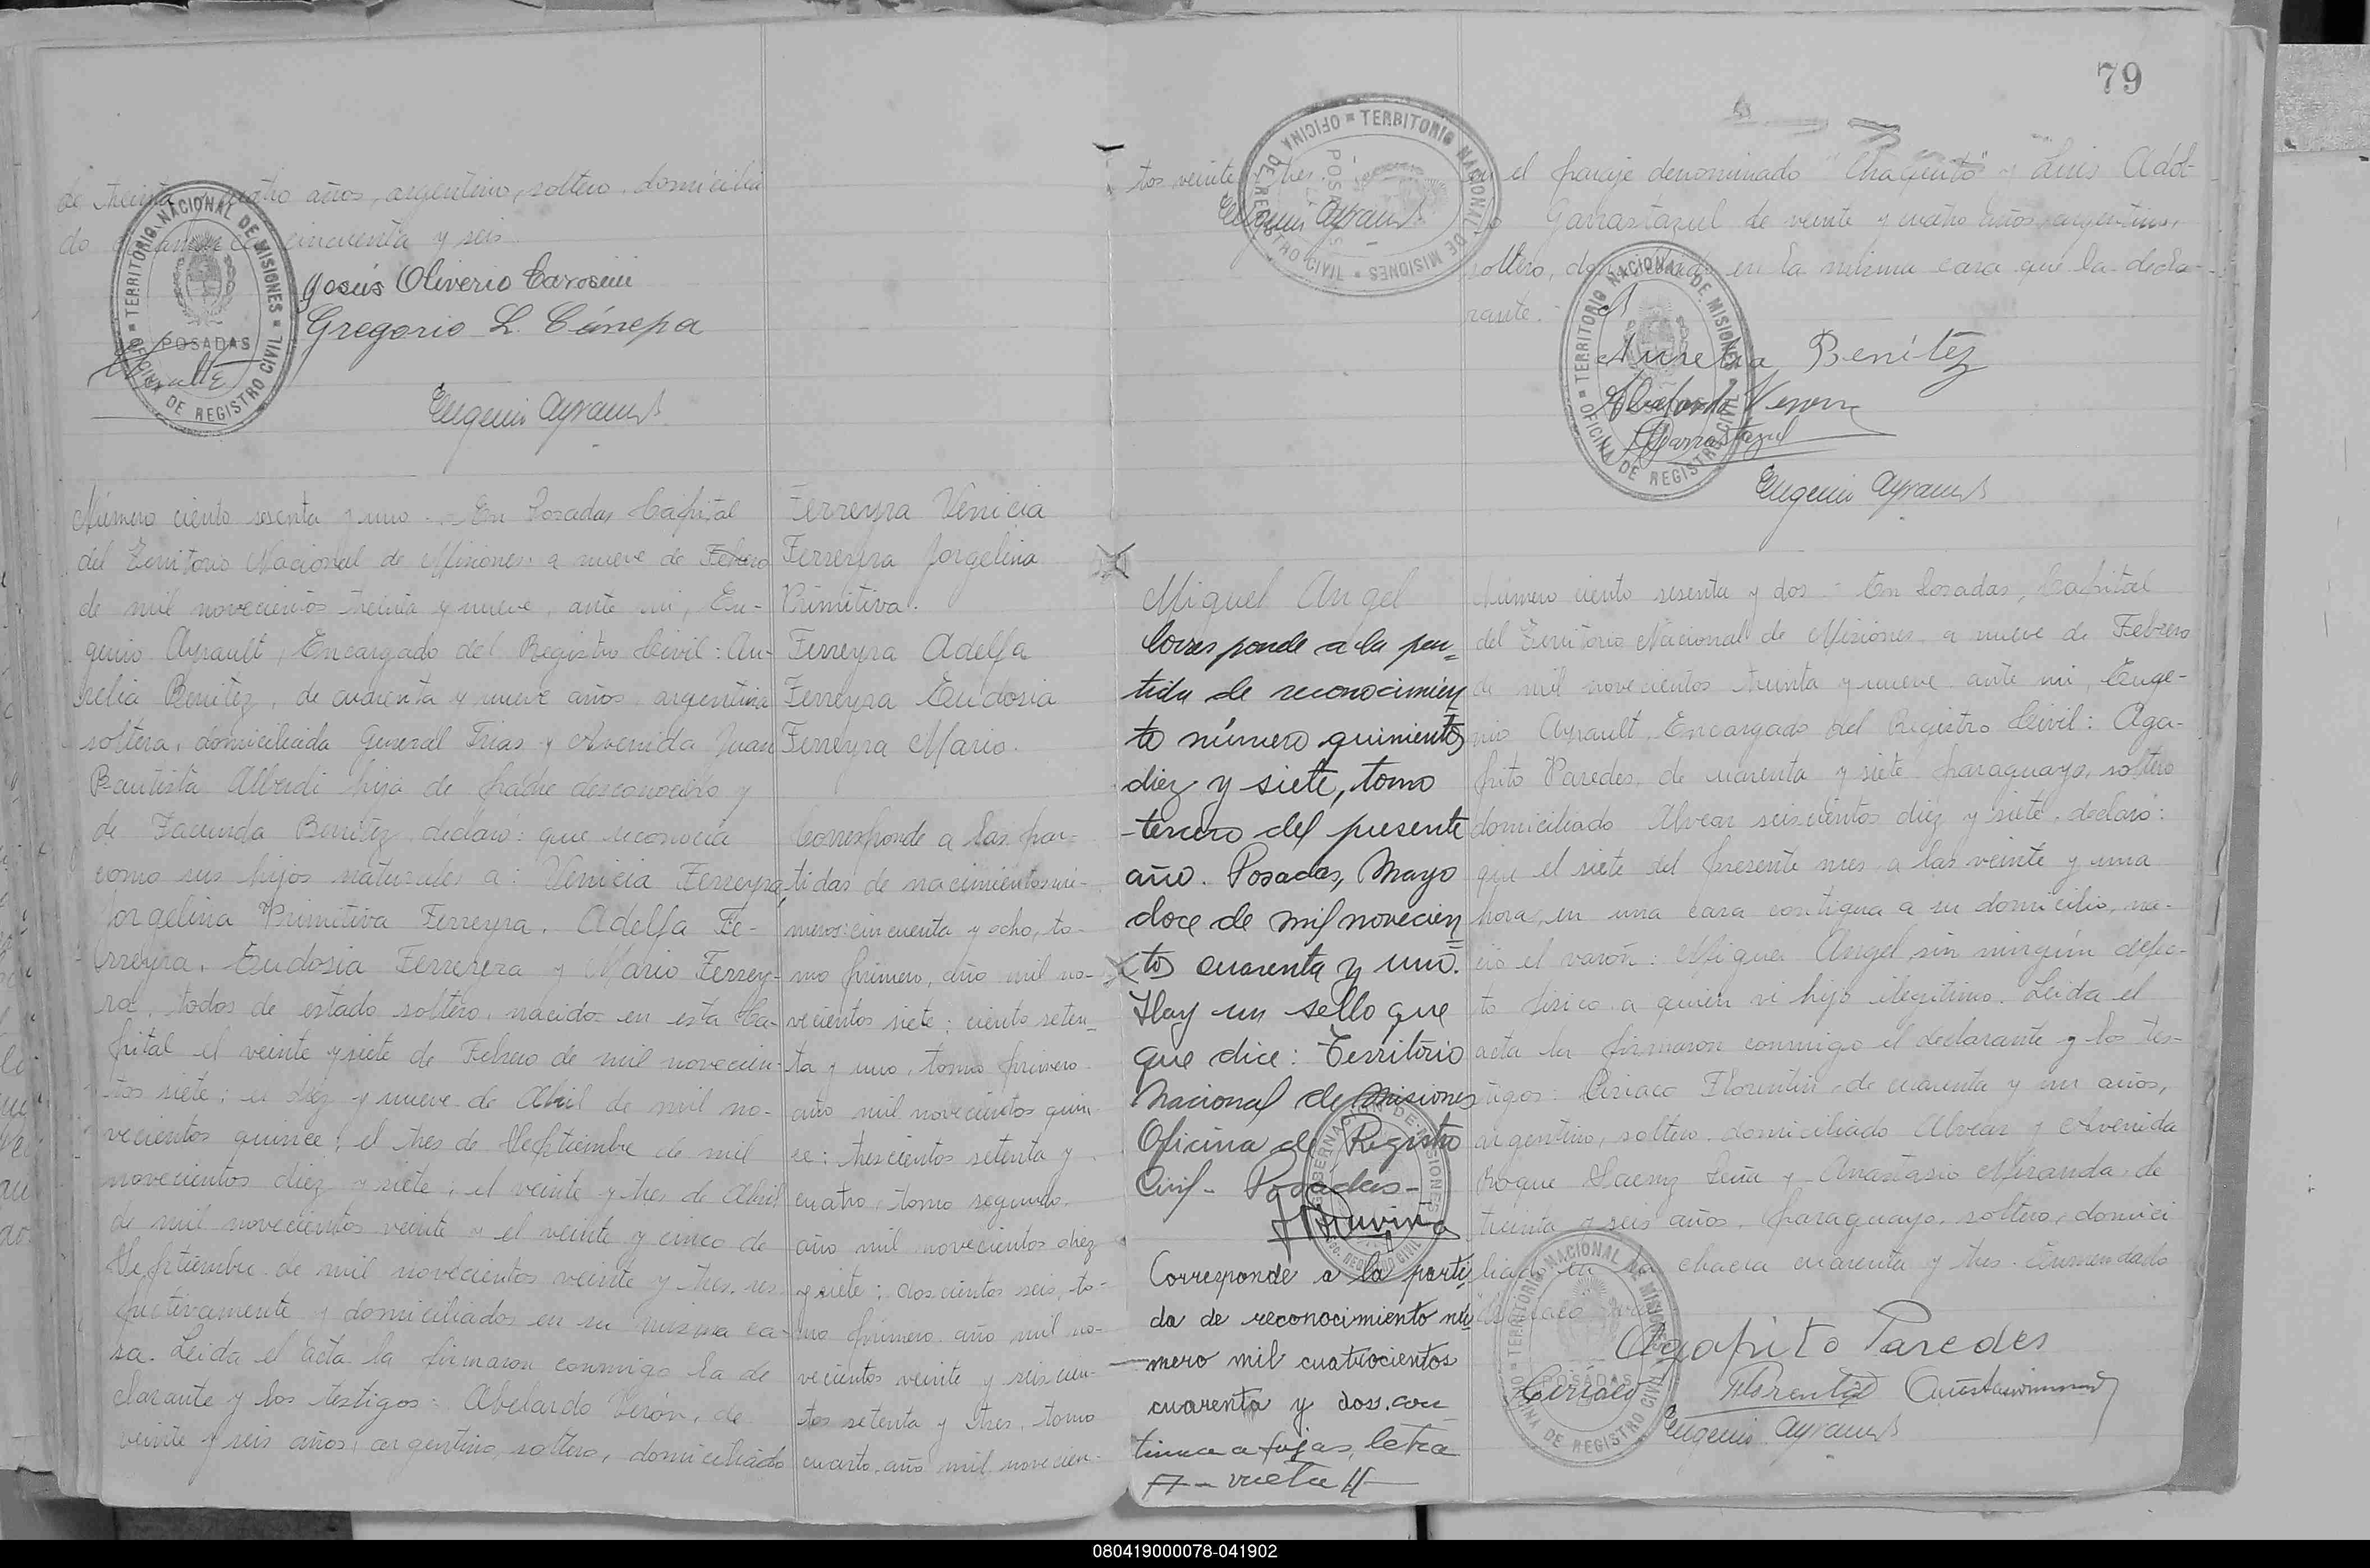 de treinta y cuatro años, argentino, soltero, domicilia
do cincuenta y seis.
TERRITORIO NACIONAL DE MISIONES
POSADAS
OFICINA DE REGISTRO CIVIL
Jesús Oliverio
Gregorio L. Cánepa
Eugenio Ayrault
Número ciento sesenta y uno. En Posadas Capital
del Territorio Nacional de Misiones, a nueve de Febrero
de mil novecientos treinta y nueve, ante mi, Eu-
genio Ayrault, Encargado del Registro Civil: Au-
relia Benitez, de cuarenta y nueve años, argentina
soltera, domiciliada General Frias y Avenida Juan
Bautista Alberdi hija de padre desconocido y
de Facunda Benitez, declaro: que reconocia
como sus hijos naturales a: Venicia Ferreyra,
Jorgelina Primitiva Ferreyra, Adelfa Fe-
rreyra, Eudosia Ferreyra y Mario Ferrey-
ra, todos de estado soltero, nacidos en esta Ca-
pital el veinte y siete de Febrero de mil novecien-
tos siete; el diez y nueve de Abril de mil no-
vecientos quince; el tres de Septiembre de mil
novecientos diez y siete; el veinte y tres de Abril
de mil novecientos veinte y el veinte y cinco de
Septiembre de mil novecientos veinte y tres, res
pectivamente y domiciliados en su misma ca-
sa. Leida el acta la firmaron conmigo la de
clarante y los testigos: Abelardo Verón, de
veinte y seis años, argentino, soltero, domiciliado
Ferreyra Venicia
Ferreyra Jorgelina
Primitiva.
Ferreyra Adelfa
Ferreyra Eudosia
Ferreyra Mario.
Corresponde a las par-
tidas de nacimientos nú-
meros: cincuenta y ocho, to-
mo primero, año mil no-
vecientos siete; ciento seten-
ta y uno, tomo primero
año mil novecientos quin
ce; trescientos setenta y
cuatro, tomo segundo,
año mil novecientos diez
y siete; doscientos seis, to-
mo primero, año mil no-
vecientos veinte y seiscien-
tos setenta y tres, tomo
cuarto, año mil novecien-
79
tos veinte y tres.
Eugenio Ayrault
TERRITORIO NACIONAL DE MISIONES
POSADAS
OFICINA DE REGISTRO CIVIL
en el paraje denominado "Chaquito" y Luis Adol-
fo Garrastazul de veinte y cuatro años, argentino,
soltero, domiciliado en la misma casa que la decla-
rante.
TERRITORIO NACIONAL DE MISIONES
OFICINA DE REGISTRO CIVIL
Aurelia Benítez
Abelardo Veron
Garrastazul
Eugenio Ayrault
Miguel Angel
Corresponde a la par=
tida de reconocimien
to número quinientos
diez y siete, tomo
tercero del presente
año. Posadas, Mayo
doce de mil novecien
tos cuarenta y uno.
Hay un sello que
que dice: Territorio
Nacional de Misiones
Oficina de Registro
Civil - Posadas -
GOBERNACION DE MISIONES
REGISTRO CIVIL
Corresponde a la parti
da de reconocimiento nú
mero mil cuatrocientos
cuarenta y dos. con
tinua a fojas, letra
A - vuelta //
Número ciento sesenta y dos - En Posadas, Capital
del Territorio Nacional de Misiones, a nueve de Febrero
de mil novecientos treinta y nueve, ante mi, Euge-
nio Ayrault, Encargado del Registro Civil: Aga-
pito Paredes, de cuarenta y siete, paraguayo, soltero
domiciliado Alvear seiscientos diez y siete, declaró:
que el siete del presente mes a las veinte y una
horas, en una casa contigua a su domicilio, na-
ció el varón: Miguel Angel, sin ningún defec-
to fisico a quien vi hijo ilegitimo. Leida el
acta la firmaron conmigo el declarante y los tes-
tigos: Ciriaco Florentin, de cuarenta y un años,
argentino, soltero, domiciliado Alvear y Avenida
Roque Saenz Peña y Anastasio Miranda, de
treinta y seis años, paraguayo, soltero, domici
liado en la chacra cuarenta y tres. Enmendado
Ciriaco vale
TERRITORIO NACIONAL DE MISIONES
POSADAS
OFICINA DE REGISTRO CIVIL
Agapito Paredes
Ciriaco Florentin
Eugenio Ayrault
080419000078-041902